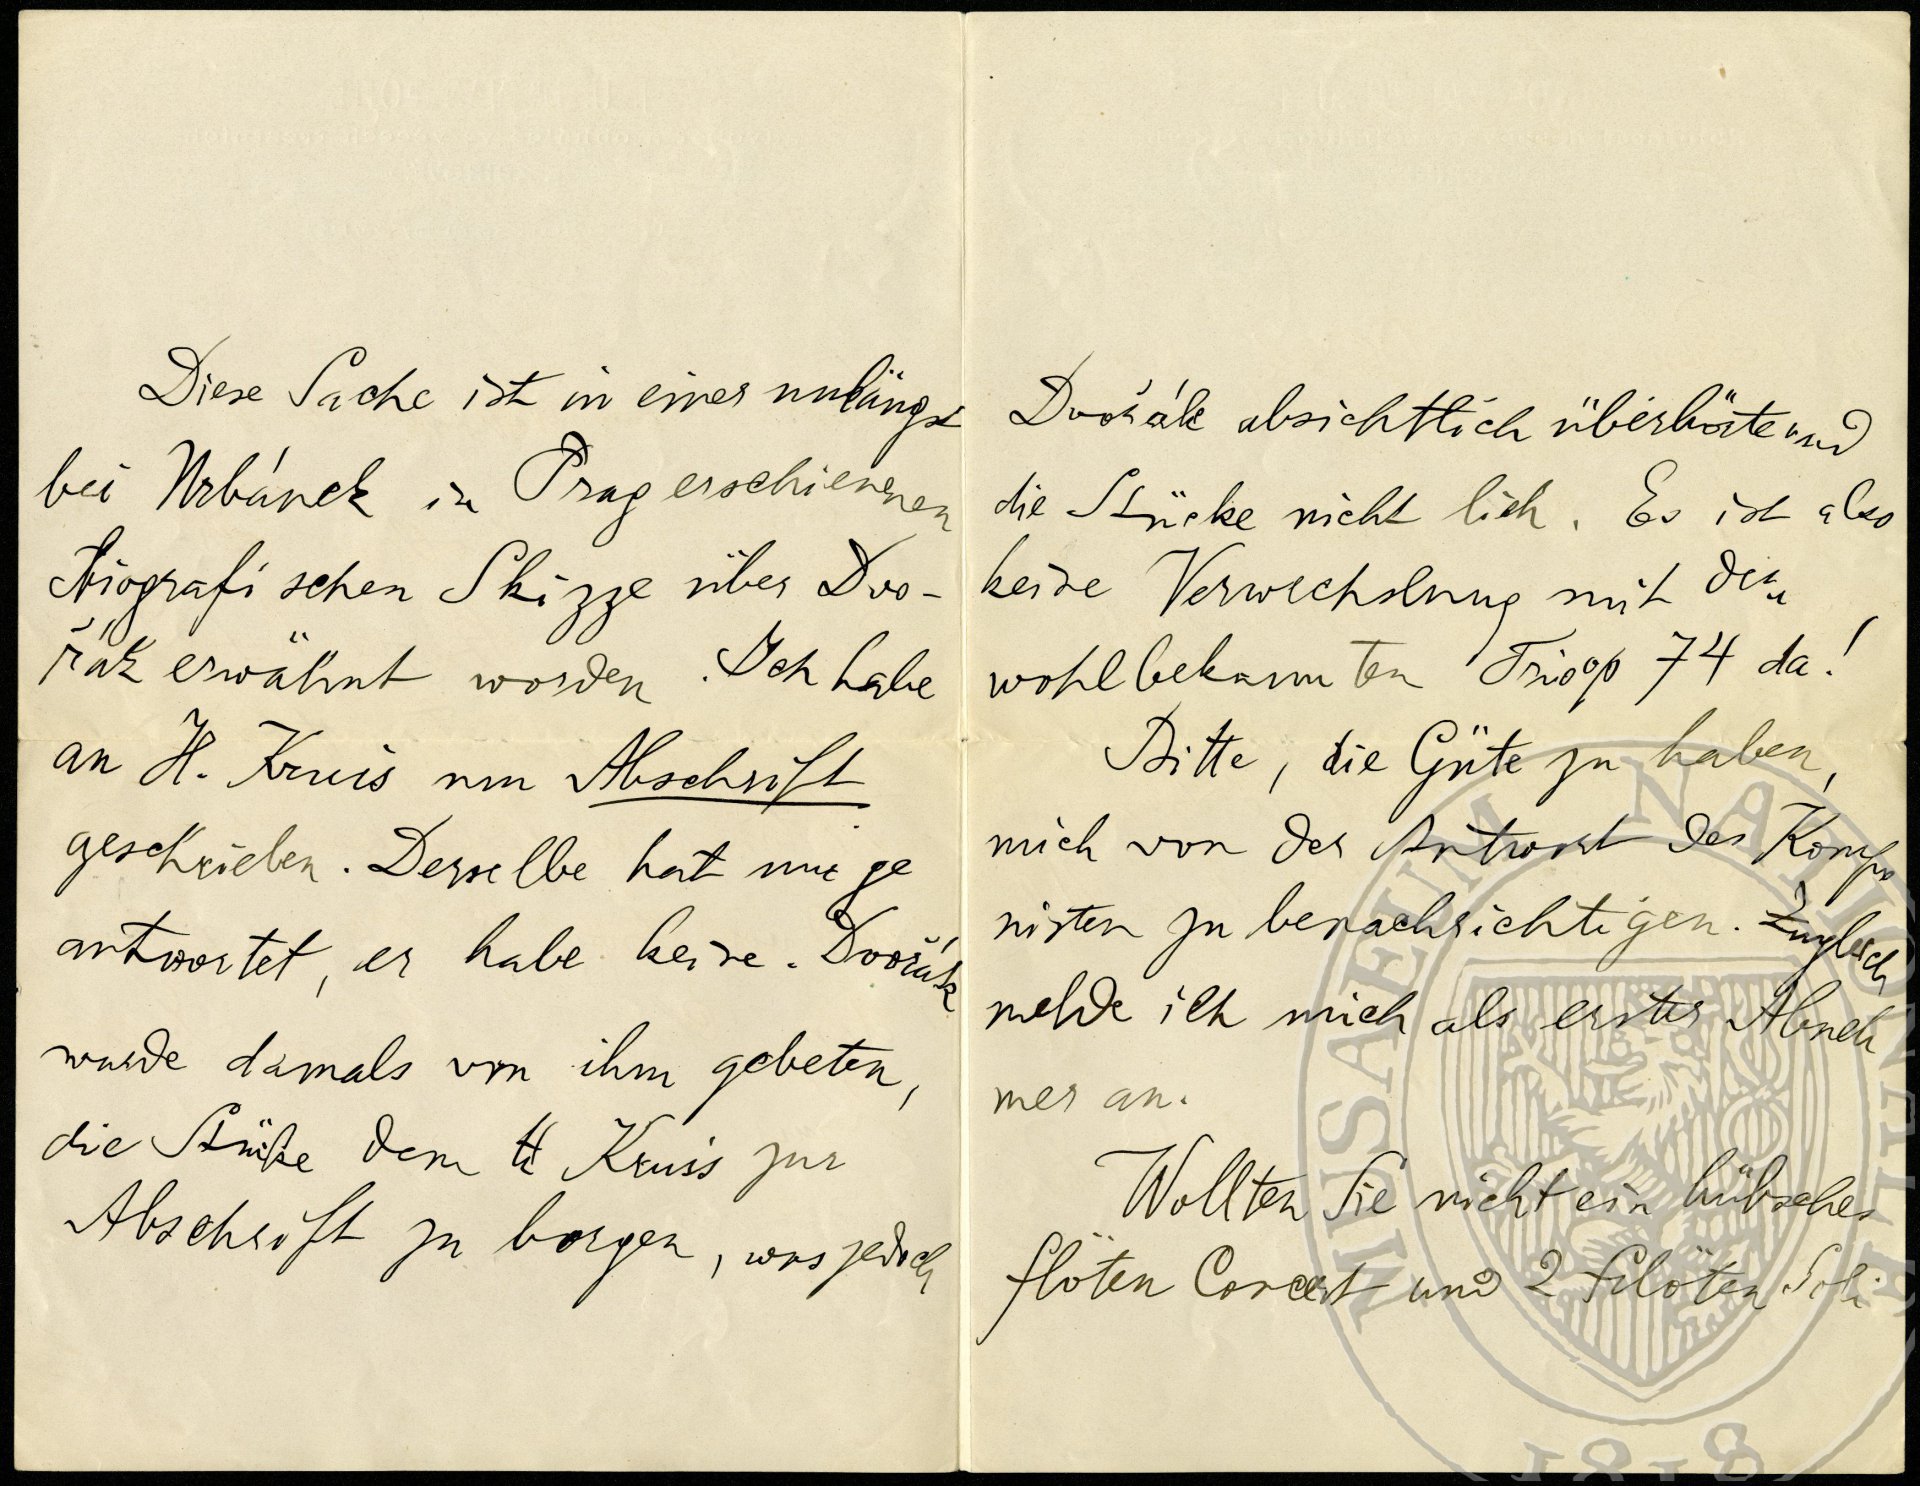 Diese Sache ist in einer unlängst
bei Urbánek in Prag erschienenen
biografischen Skizze über Dvo-
řák erwähnt worden. Ich habe
an H. Kruis um Abschrift
geschrieben. Derselbe hat mir ge
antwortet, er habe keine. Dvořák
wurde damals von ihm gebeten,
die Stücke dem H Kruis zur
Abschrift zu borgen, was jedoch
Dvořák absichtlich überhörte und
die Stücke nicht lieh. Es ist also
keine Verwechslung mit dem
wohlbekannten Trio op 74 da!
Bitte, die Güte zu haben,
mich von der Antwort des Kompo
nisten zu benachrichtigen. Zugleich
melde ich mich als erster Abneh
mer an.
Wollten Sie nicht ein hübsches
flöten Concert und 2 Flöten Soli
MUSAEUM NATIONALE
1818